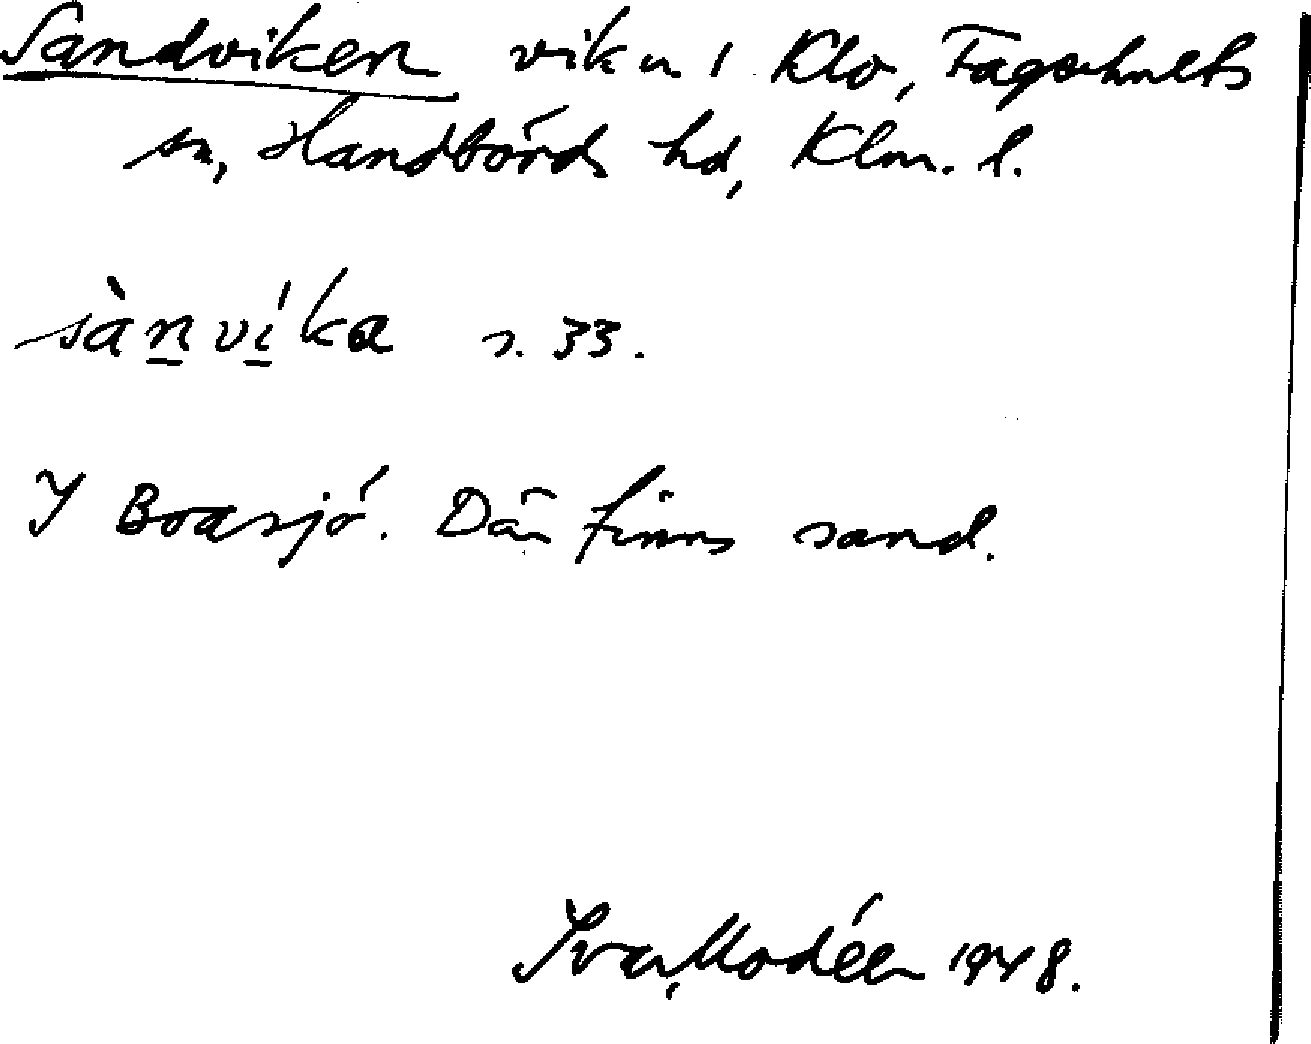 Sandviken vik u i Klo, Fagerhults
sn, Handbörds hd, Klm. l.
sànvíka s. 33.
I Boasjö. Där finns sand.
Ivar Modéer 1948.